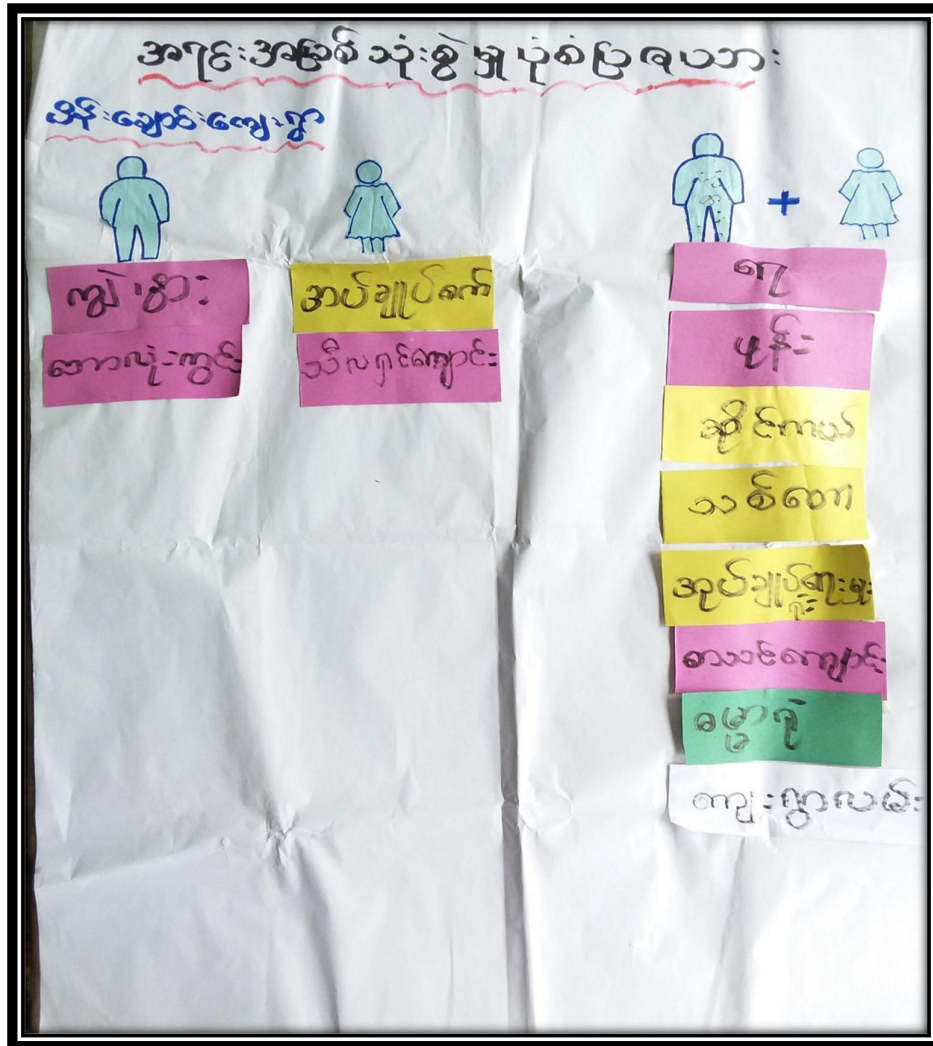 အရင်းအမြစ်သုံးစွဲမှုပုံစံပြဇယား
ပိန်းချောင်းကျေးရွာ
+
ကျွဲ၊နွား
ဘောလုံးကွင်း
အပ်ချုပ်စက်
သီလရှင်ကျောင်း
ရေ
ဖုန်း
ဆိုင်ကယ်
သစ်တော
အုပ်ချုပ်ရေးမှူးရုံး
စာသင်ကျောင်း
ဓမ္မာရုံ
ကျေးရွာလမ်း